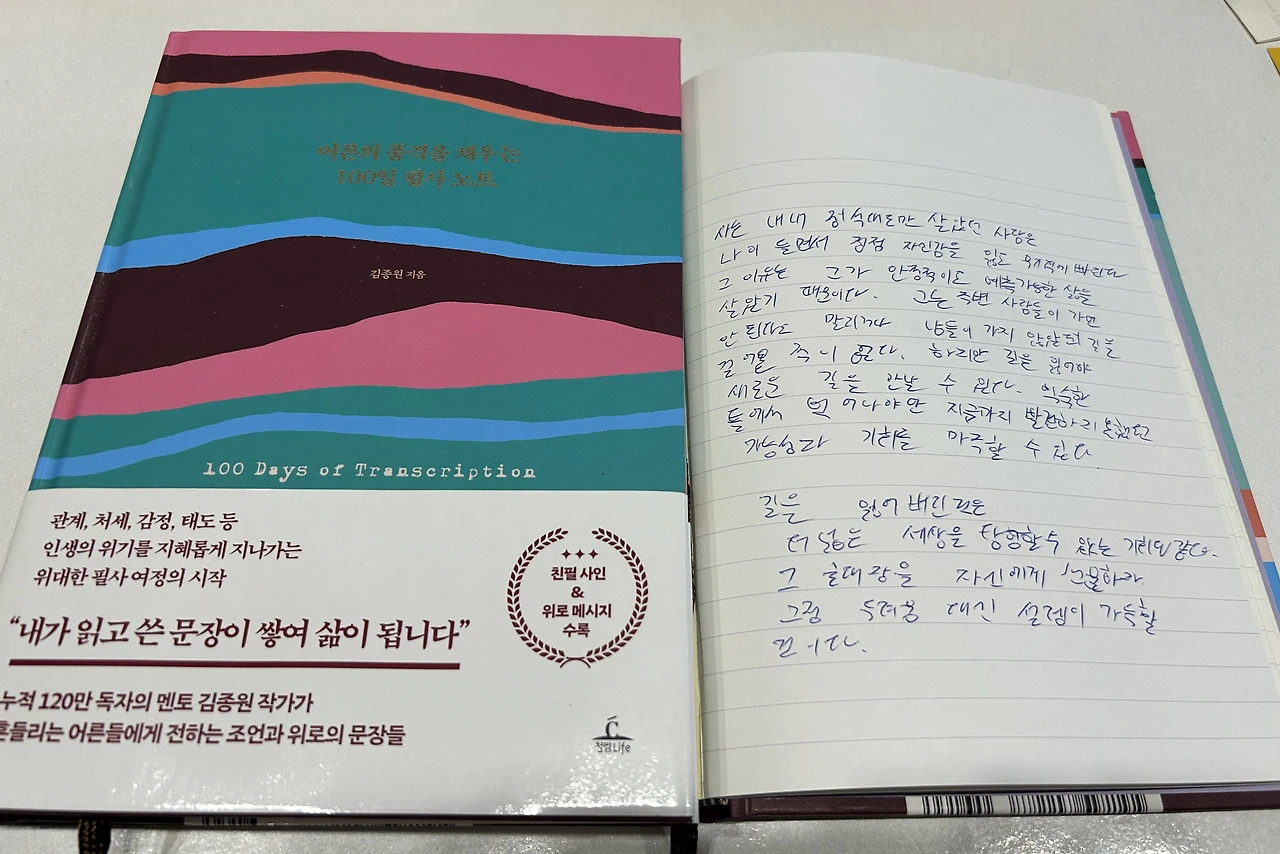 어른의 품격을 채우는
100일 필사 노트
김종원 지음
100 Days of Transcription
관계, 처세, 감정, 태도 등
인생의 위기를 지혜롭게 지나가는
위대한 필사 여정의 시작
“내가 읽고 쓴 문장이 쌓여 삶이 됩니다”
누적 120만 독자의 멘토 김종원 작가가
흔들리는 어른들에게 전하는 조언과 위로의 문장들
친필 사인
&
위로 메시지
수록
청림Life
사는 내내 정석대로만 살았던 사람은
나이 들면서 점점 자신감을 잃고 무기력에 빠진다
그 이유는 그가 안정적이고 예측가능한 삶을
살았기 때문이다. 그는 주변 사람들이 가면
안 된다고 말리거나 남들이 가지 않았던 길을
걸어본 적이 없다. 하지만 길을 잃어야
새로운 길을 만날 수 있다. 익숙한
틀에서 벗어나야만 지금까지 발견하지 못했던
가능성과 기회를 마주할 수 있다.
길을 잃어버린 것은
더 넓은 세상을 탐험할 수 있는 기회와 같다.
그 초대장을 자신에게 선물하라
그럼 두려움 대신 설렘이 가득할
것이다.